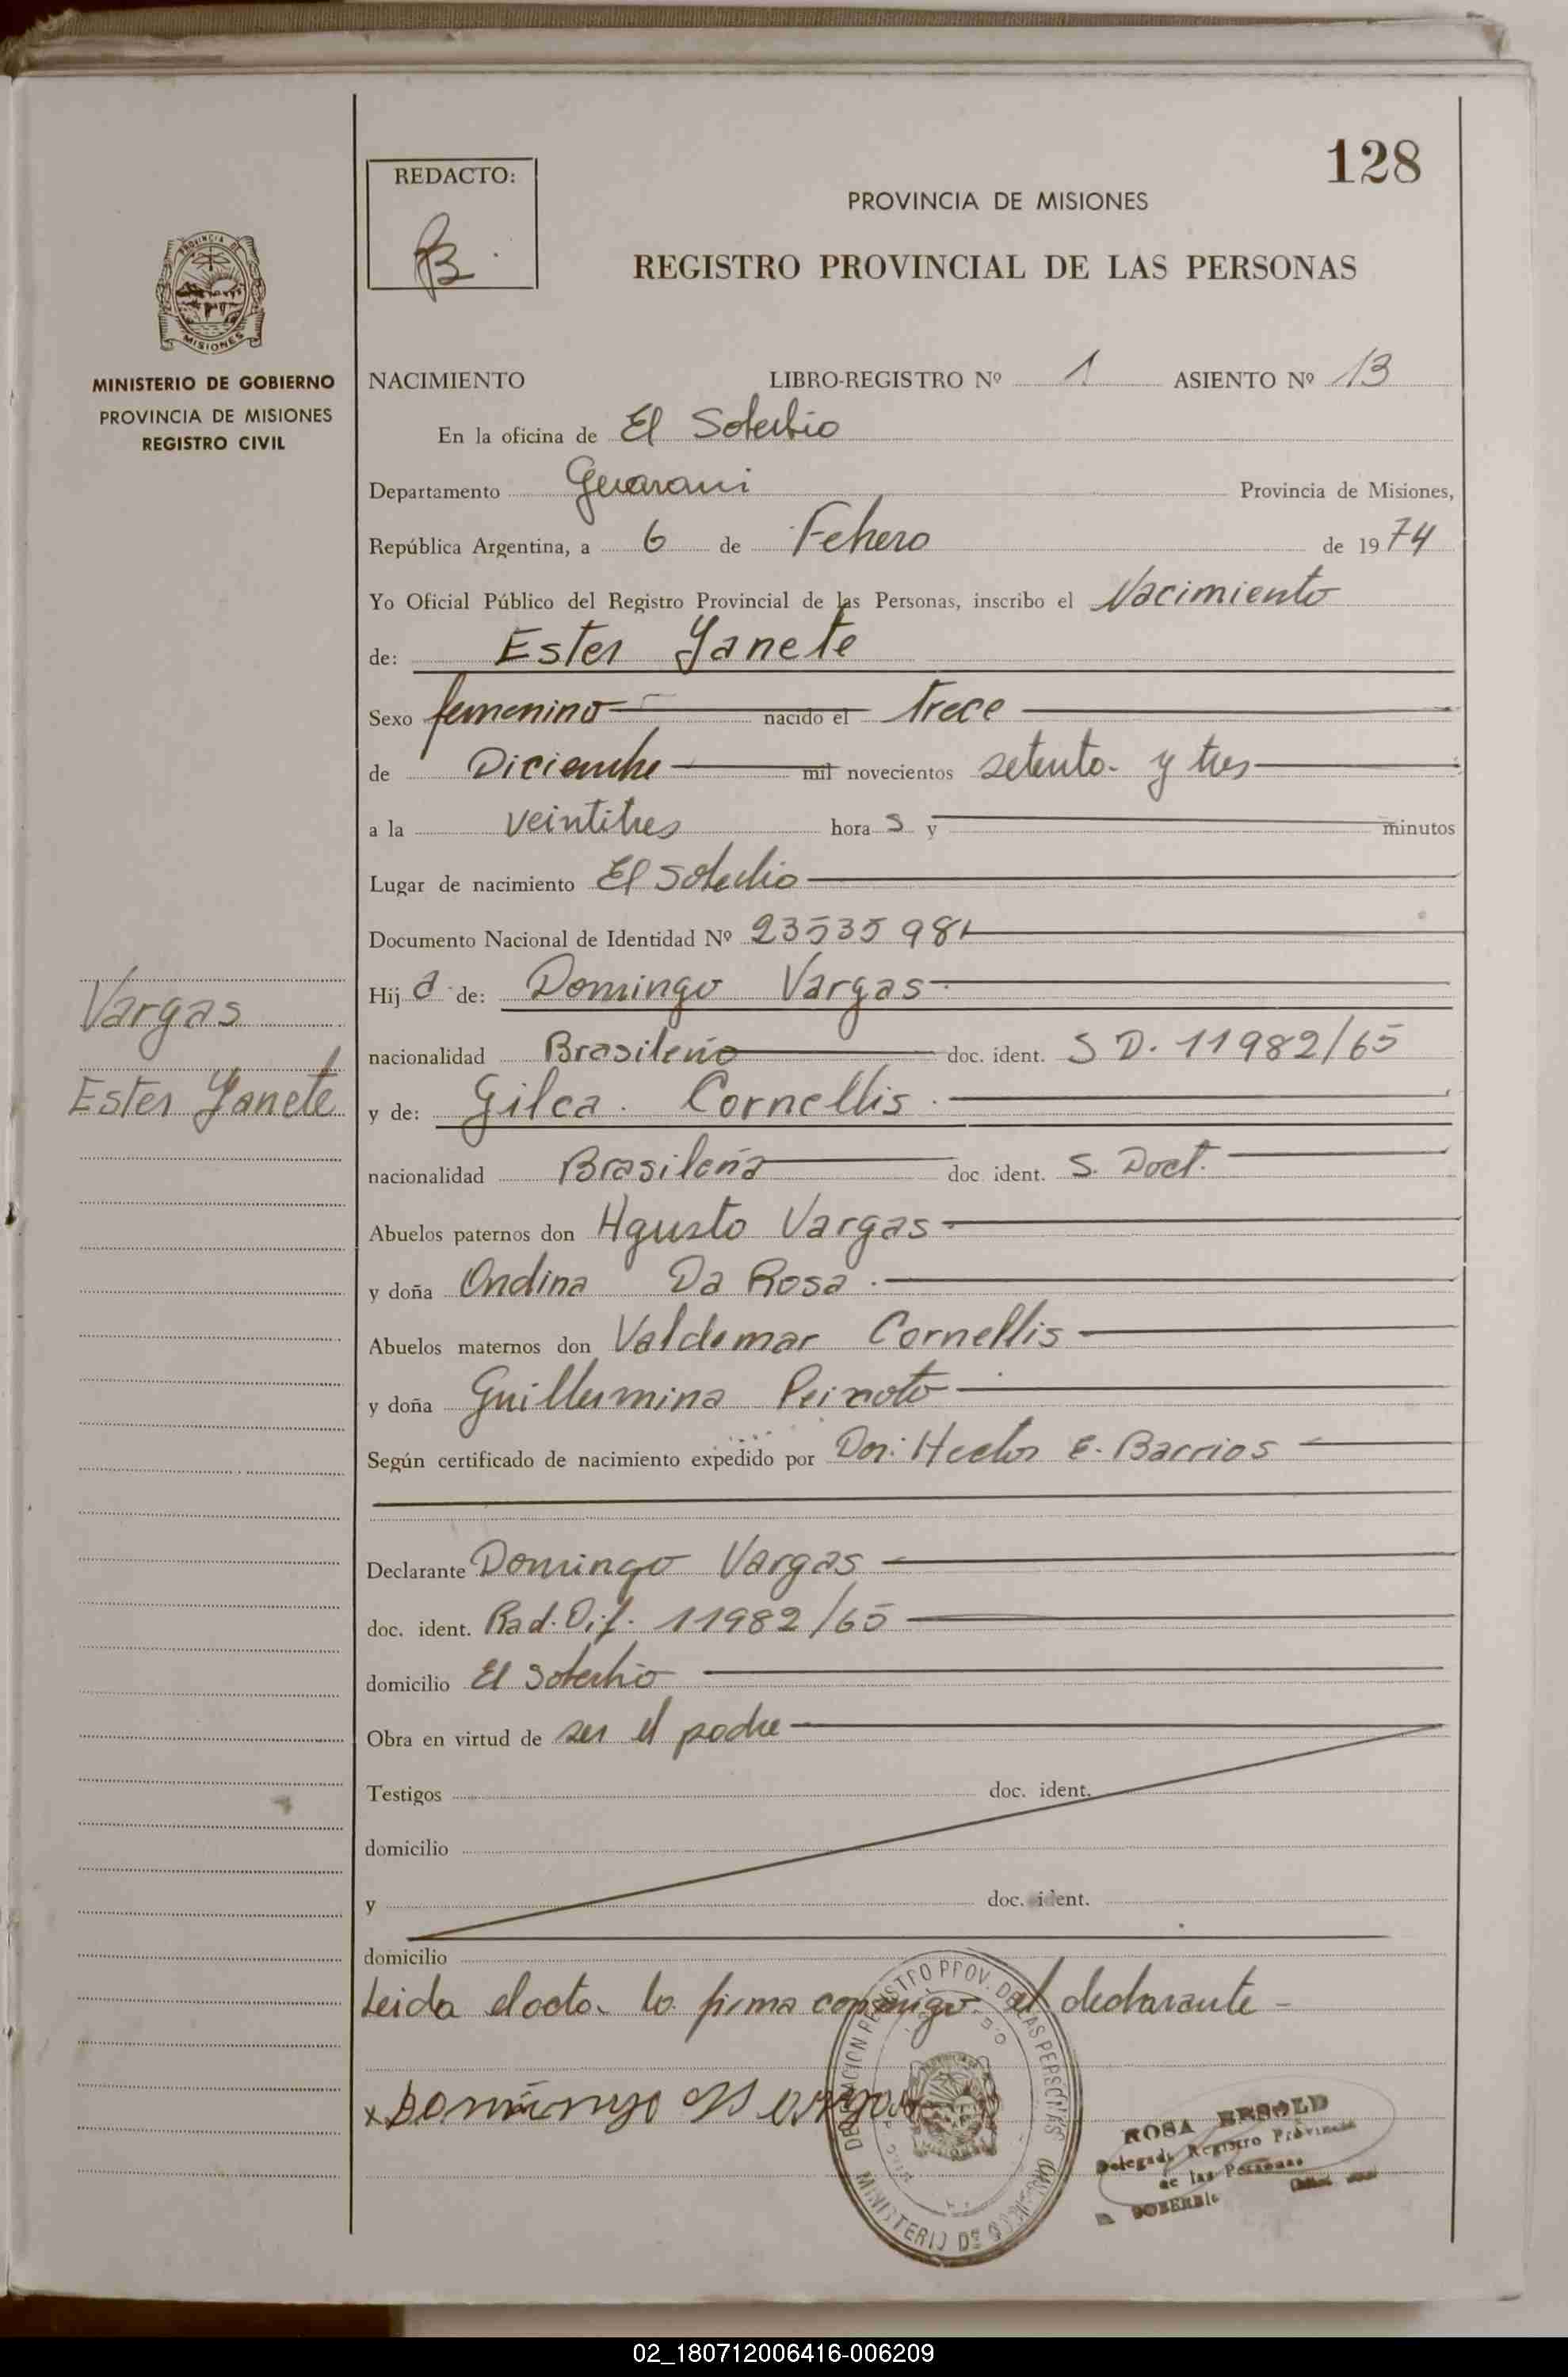 128
REDACTO:
PROVINCIA DE MISIONES
REGISTRO PROVINCIAL DE LAS PERSONAS
PROVINCIA DE
MISIONES
MINISTERIO DE GOBIERNO
PROVINCIA DE MISIONES
REGISTRO CIVIL
NACIMIENTO LIBRO-REGISTRO Nº 1 ASIENTO Nº 13
En la oficina de El Soberbio
Departamento Guarani Provincia de Misiones,
República Argentina, a 6 de Febrero de 1974
Yo Oficial Público del Registro Provincial de las Personas, inscribo el Nacimiento
de: Ester Yanete
Sexo femenino nacido el trece
de Diciembre mil novecientos setenta y tres
a la veintitres hora s y minutos
Lugar de nacimiento El Soberbio
Documento Nacional de Identidad Nº 23535981
Hij a de: Domingo Vargas
Vargas
nacionalidad Brasileño doc. ident. S D. 11982/65
Ester Yanete
y de: Gilca Cornellis
nacionalidad Brasileña doc. ident. S. Doct.
Abuelos paternos don Agusto Vargas
y doña Ondina Da Rosa
Abuelos maternos don Valdemar Cornellis
y doña Guillermina Peixoto
Según certificado de nacimiento expedido por Don: Hector E. Barrios
Declarante Domingo Vargas
doc. ident. Rad. Dif. 11982/65
domicilio El Soberbio
Obra en virtud de ser el padre
Testigos doc. ident.
domicilio
y doc. ident.
domicilio
Leida el acta la firma conmigo el declarante
x Domingo Vargas
ROSA
Registro Provincial
de las Personas
SOBERBIO
02_180712006416-006209